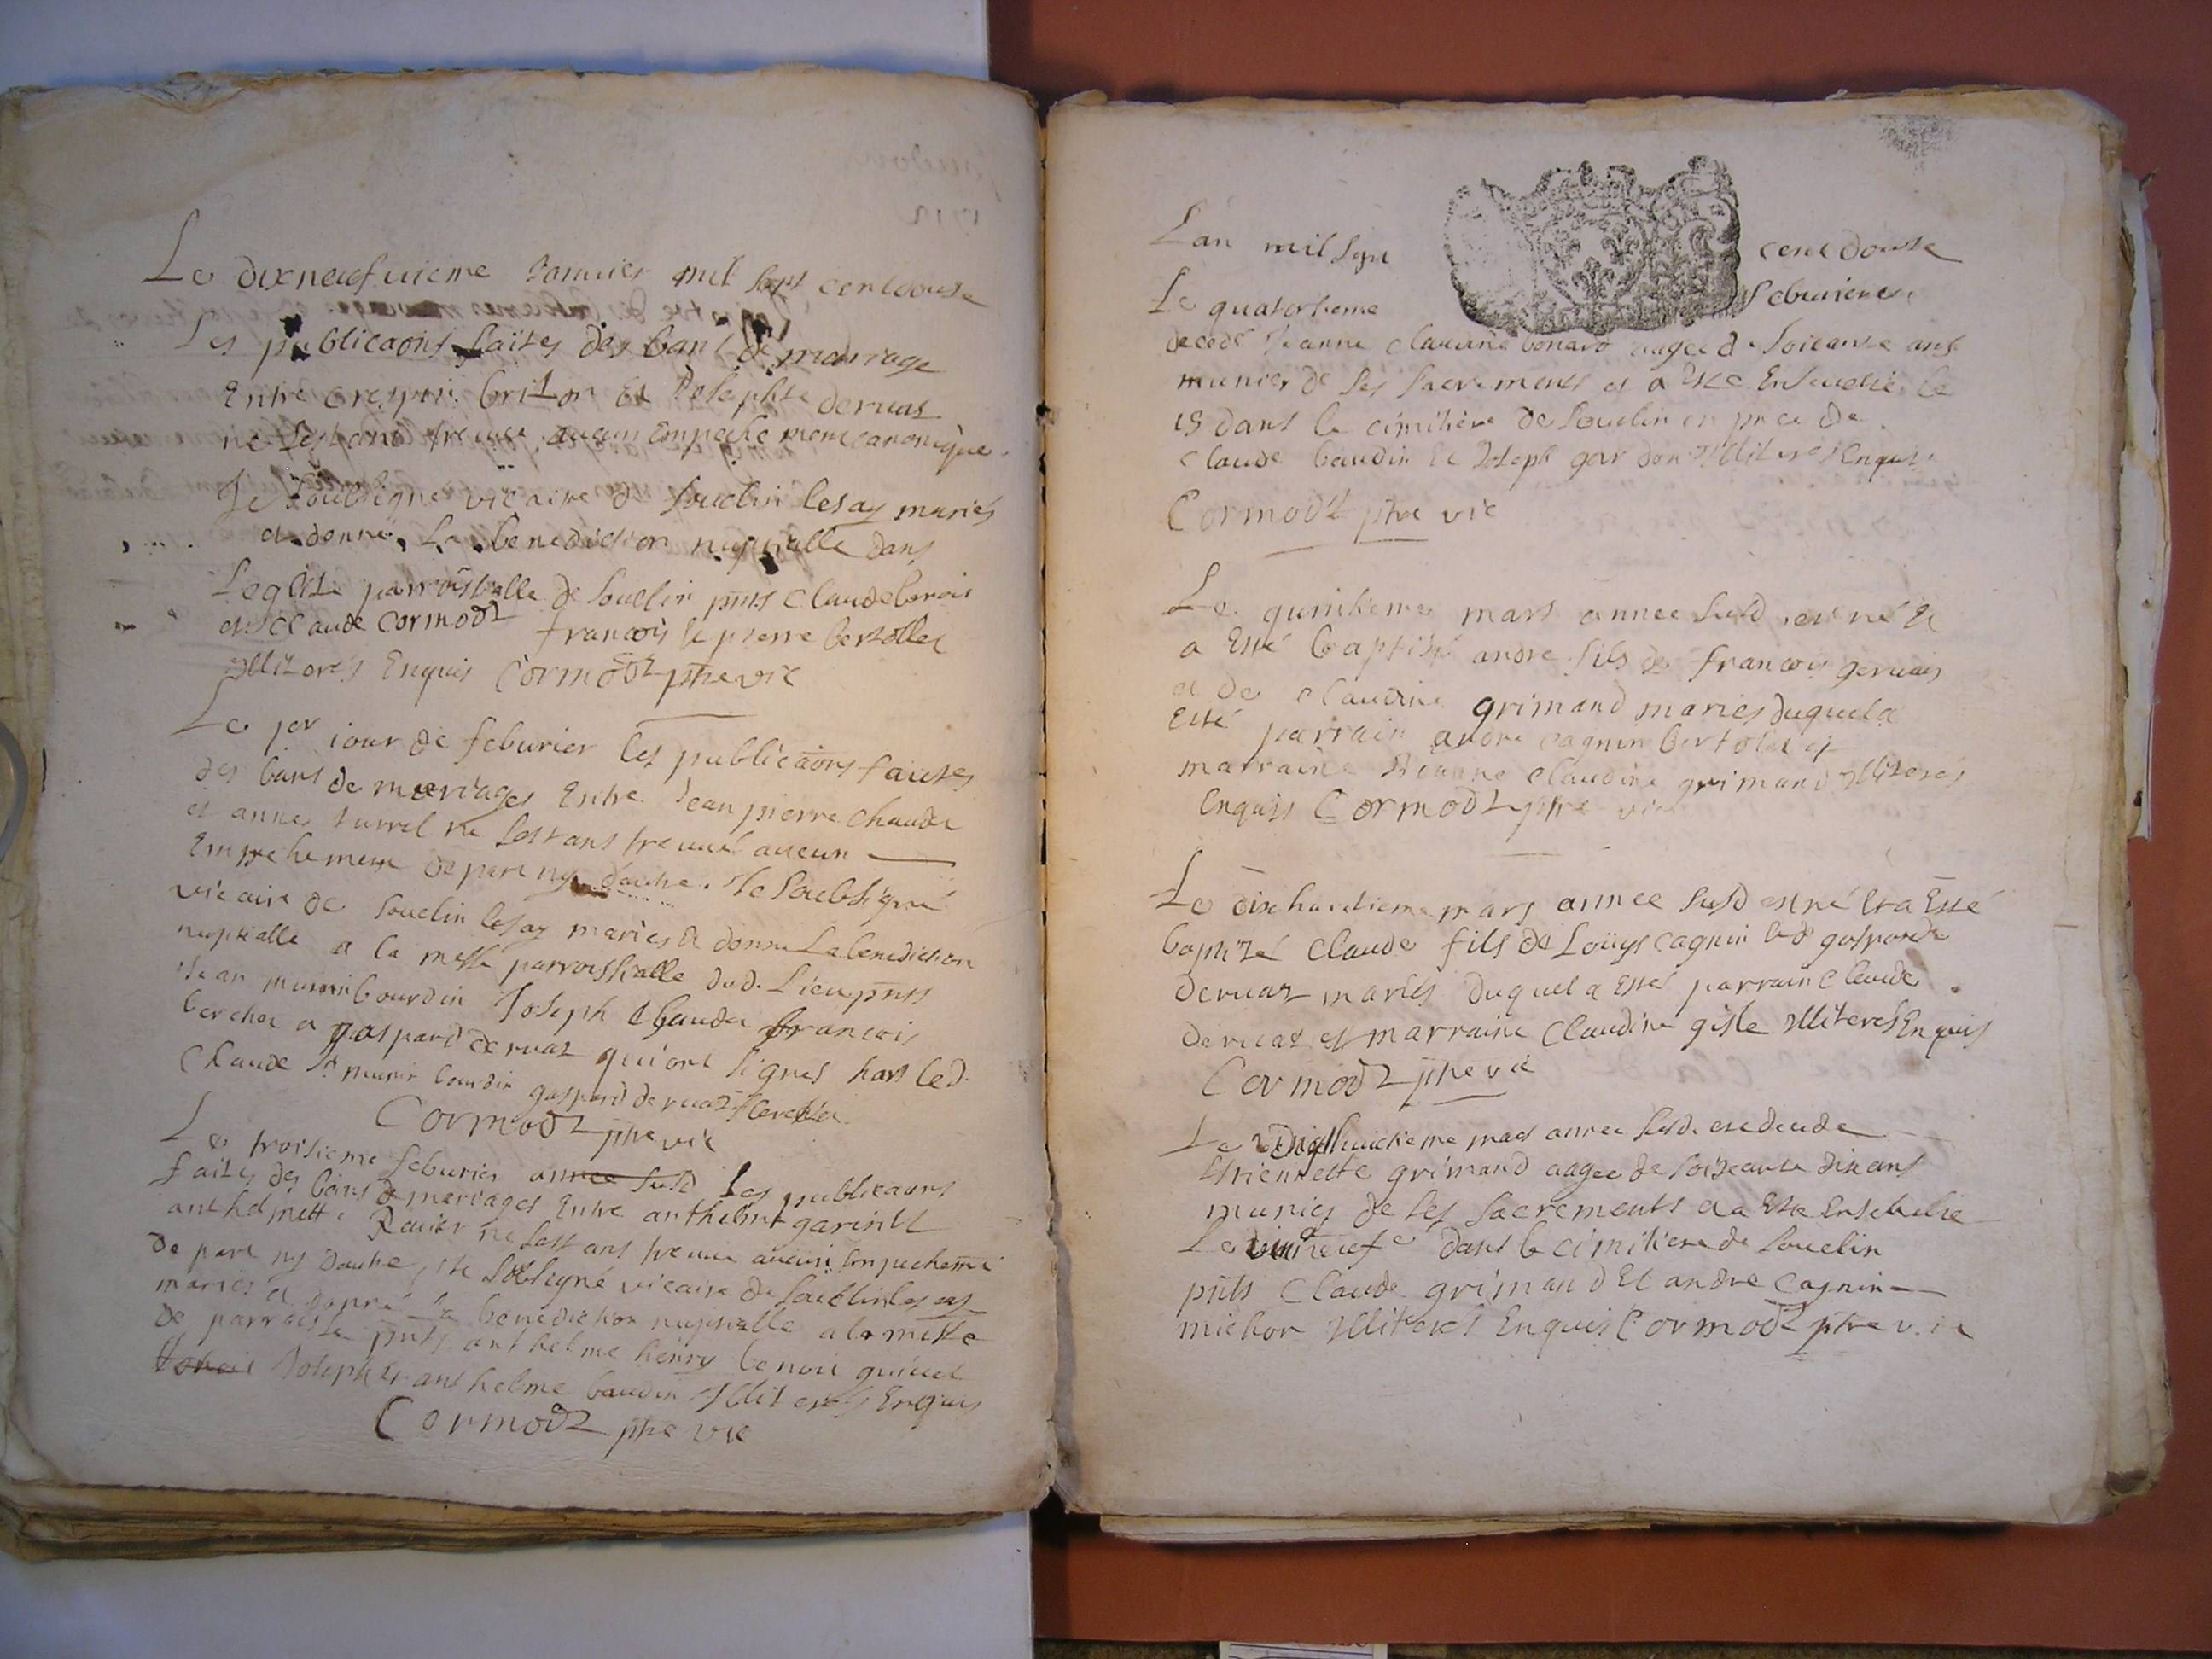 Le dixneufvieme Januier mil sept cent douse
Les publicaons faites des bans de marriage
Entre crespin briton et Josephte deruaz
ne sestant treuué aucun Empeche ment canonique
Je soubsigne vicaire de souclin les ay mariés
et donné La benediction nuptialle dans
Leglise parroissialle de souclin pnts Claude
et claude Cormod françois et pierre bertollet
Illiterés Enquis Cormod ptre vic
Le per iour de feburier les publicaons faictes
des bans de marriages Entre Jean pierre chaudet
et anne turrel ne sestans treuué aucun
Empechement de part ny d'autre. Je soubsigné
vicaire de souclin les ay mariés et donné La benediction
nuptialle a la messe parroissialle dud. Lieu pnts
Jean munir bourdin Joseph Chaudet francois
berchet et gaspard deruaz qui ont signés hors led.
Chaudet munir bourdin gaspard deruaz f berchet
Cormod ptre vic
Le troisieme feburier annee susd Les publicaons
faites des bans de marriages Entre anthelme garin et
anthelmette Rauier ne sestans treuué aucun Empechemt
de part ny dautre, Je sobsigné vicaire de souclin les ay
mariés et donné la benediction nuptialle a la messe
de parroisse pnts anthelme henry benoit
Joseph et anthelme baudin Illiterés Enquis
Cormod ptre vic
L'an mil sept cent douse
Le quatorsieme feburier est
decede Jeanne claudine bonard aagee de soixante ans
munies de ses sacrements et a esté Enseuelie le
15 dans le cimitière de souclin en pnce de
Claude baudin et Joseph gardon Illiterés Enquis
Cormod ptre vic
Le quinsieme mars annee susd est né et
a Esté baptisé andre fils de francois geruais
et de claudine grimand mariés duquel a
Esté parrain andre cagnin bertolet et
marraine Jeanne claudine grimand Illiterés
Enquis Cormod ptre vic
Le dixhuictieme mars annee susd est né Et a Esté
baptizé Claude fils de Loüys cagnin et de gasparde
deruaz mariés duquel a Esté parrain Claude
deruaz et marraine Claudine gisle Illiterés Enquis
Cormod ptre vic
Le dixhuictieme mars annee susd. est decede
Estiennette grimand aagee de soixante dix ans
munies de ses sacrements et a Esté Enseuelie
Le dixneufe dans le cimitiere de souclin
pnts Claude grimand Et andre Cagnin
michon Illiterés Enquis Cormod ptre vic